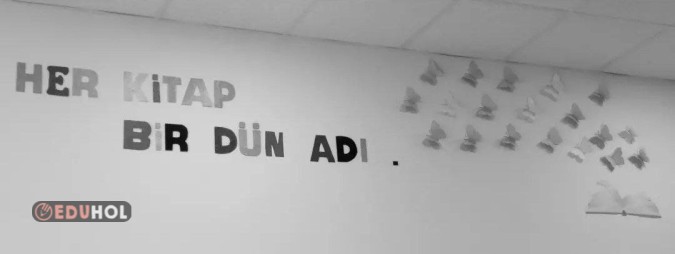 HER KiTAP
BiR DÜN ADI .
EDUHOL